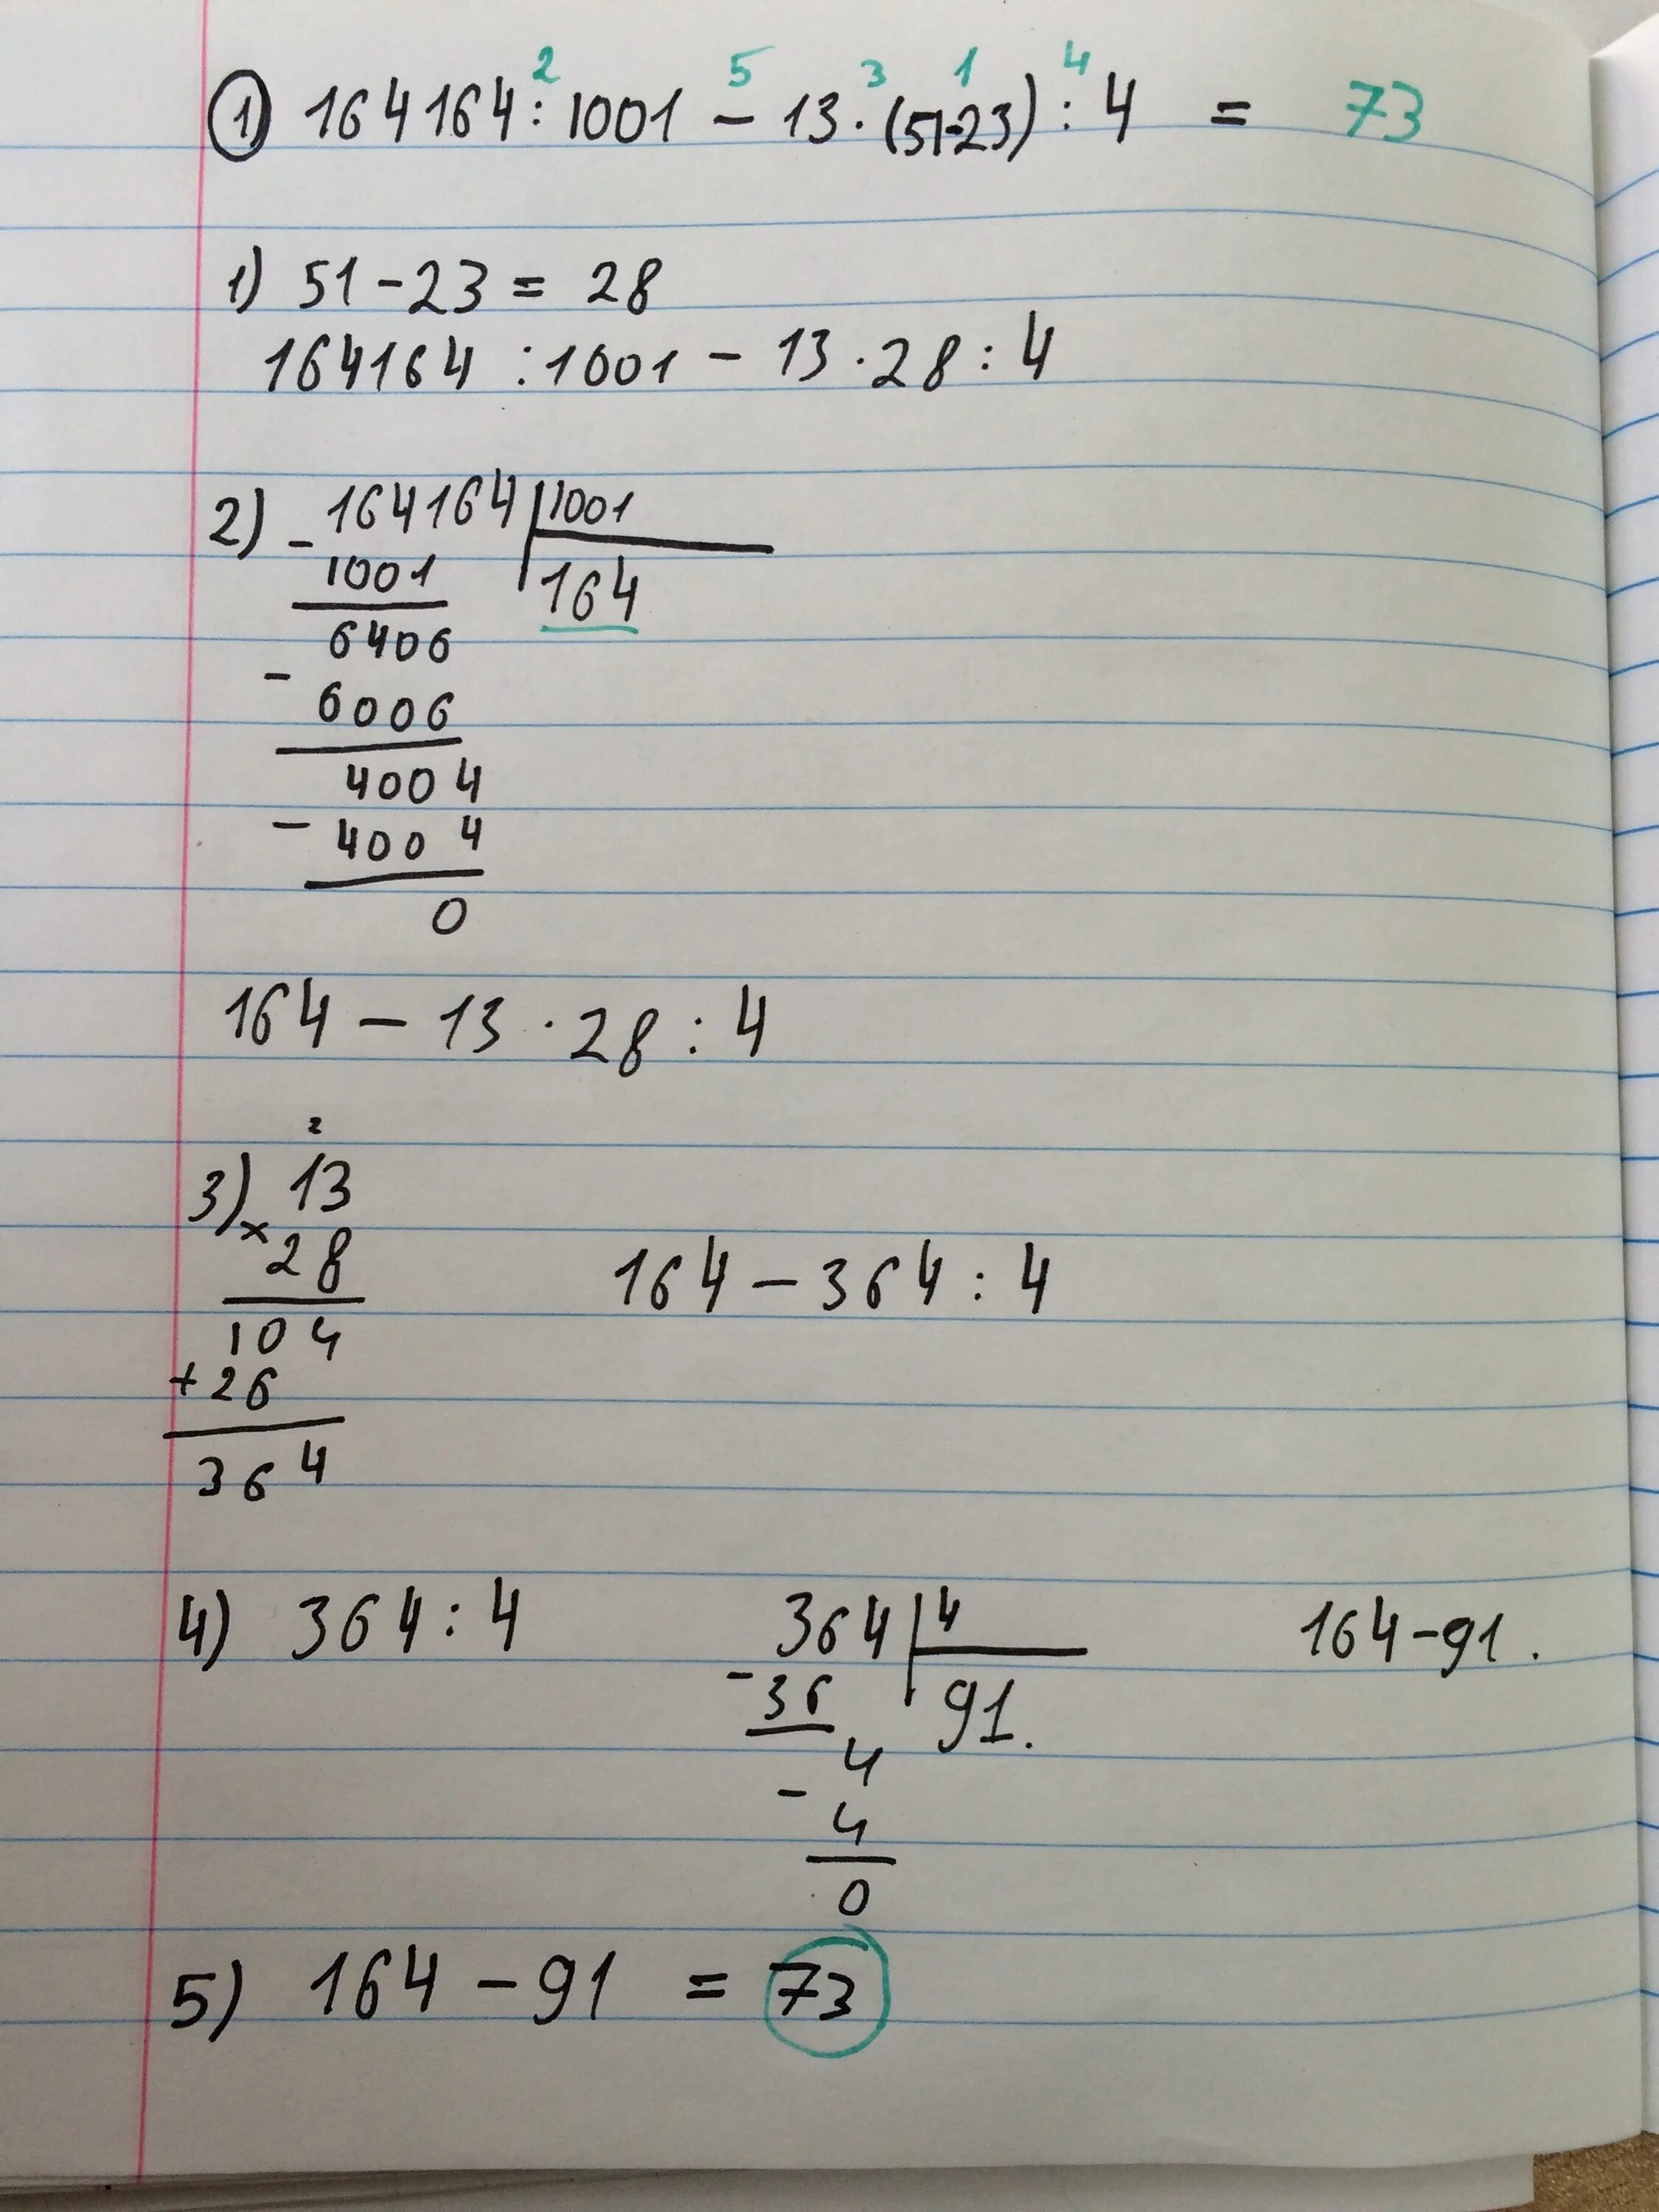 2 5 3 1 4
① 164164 : 1001 – 13 · (51-23) : 4 = 73
1) 51 - 23 = 28
164164 : 1001 – 13 · 28 : 4
2) - 164164 | 1001
1001 164
6406
-
6006
4004
- 4004
0
164 – 13 · 28 : 4
2
3) 13
× 28 164 – 364 : 4
104
+ 26
364
4) 364 : 4 364 | 4 164 - 91.
- 36 91.
4
-
4
0
5) 164 - 91 = 73